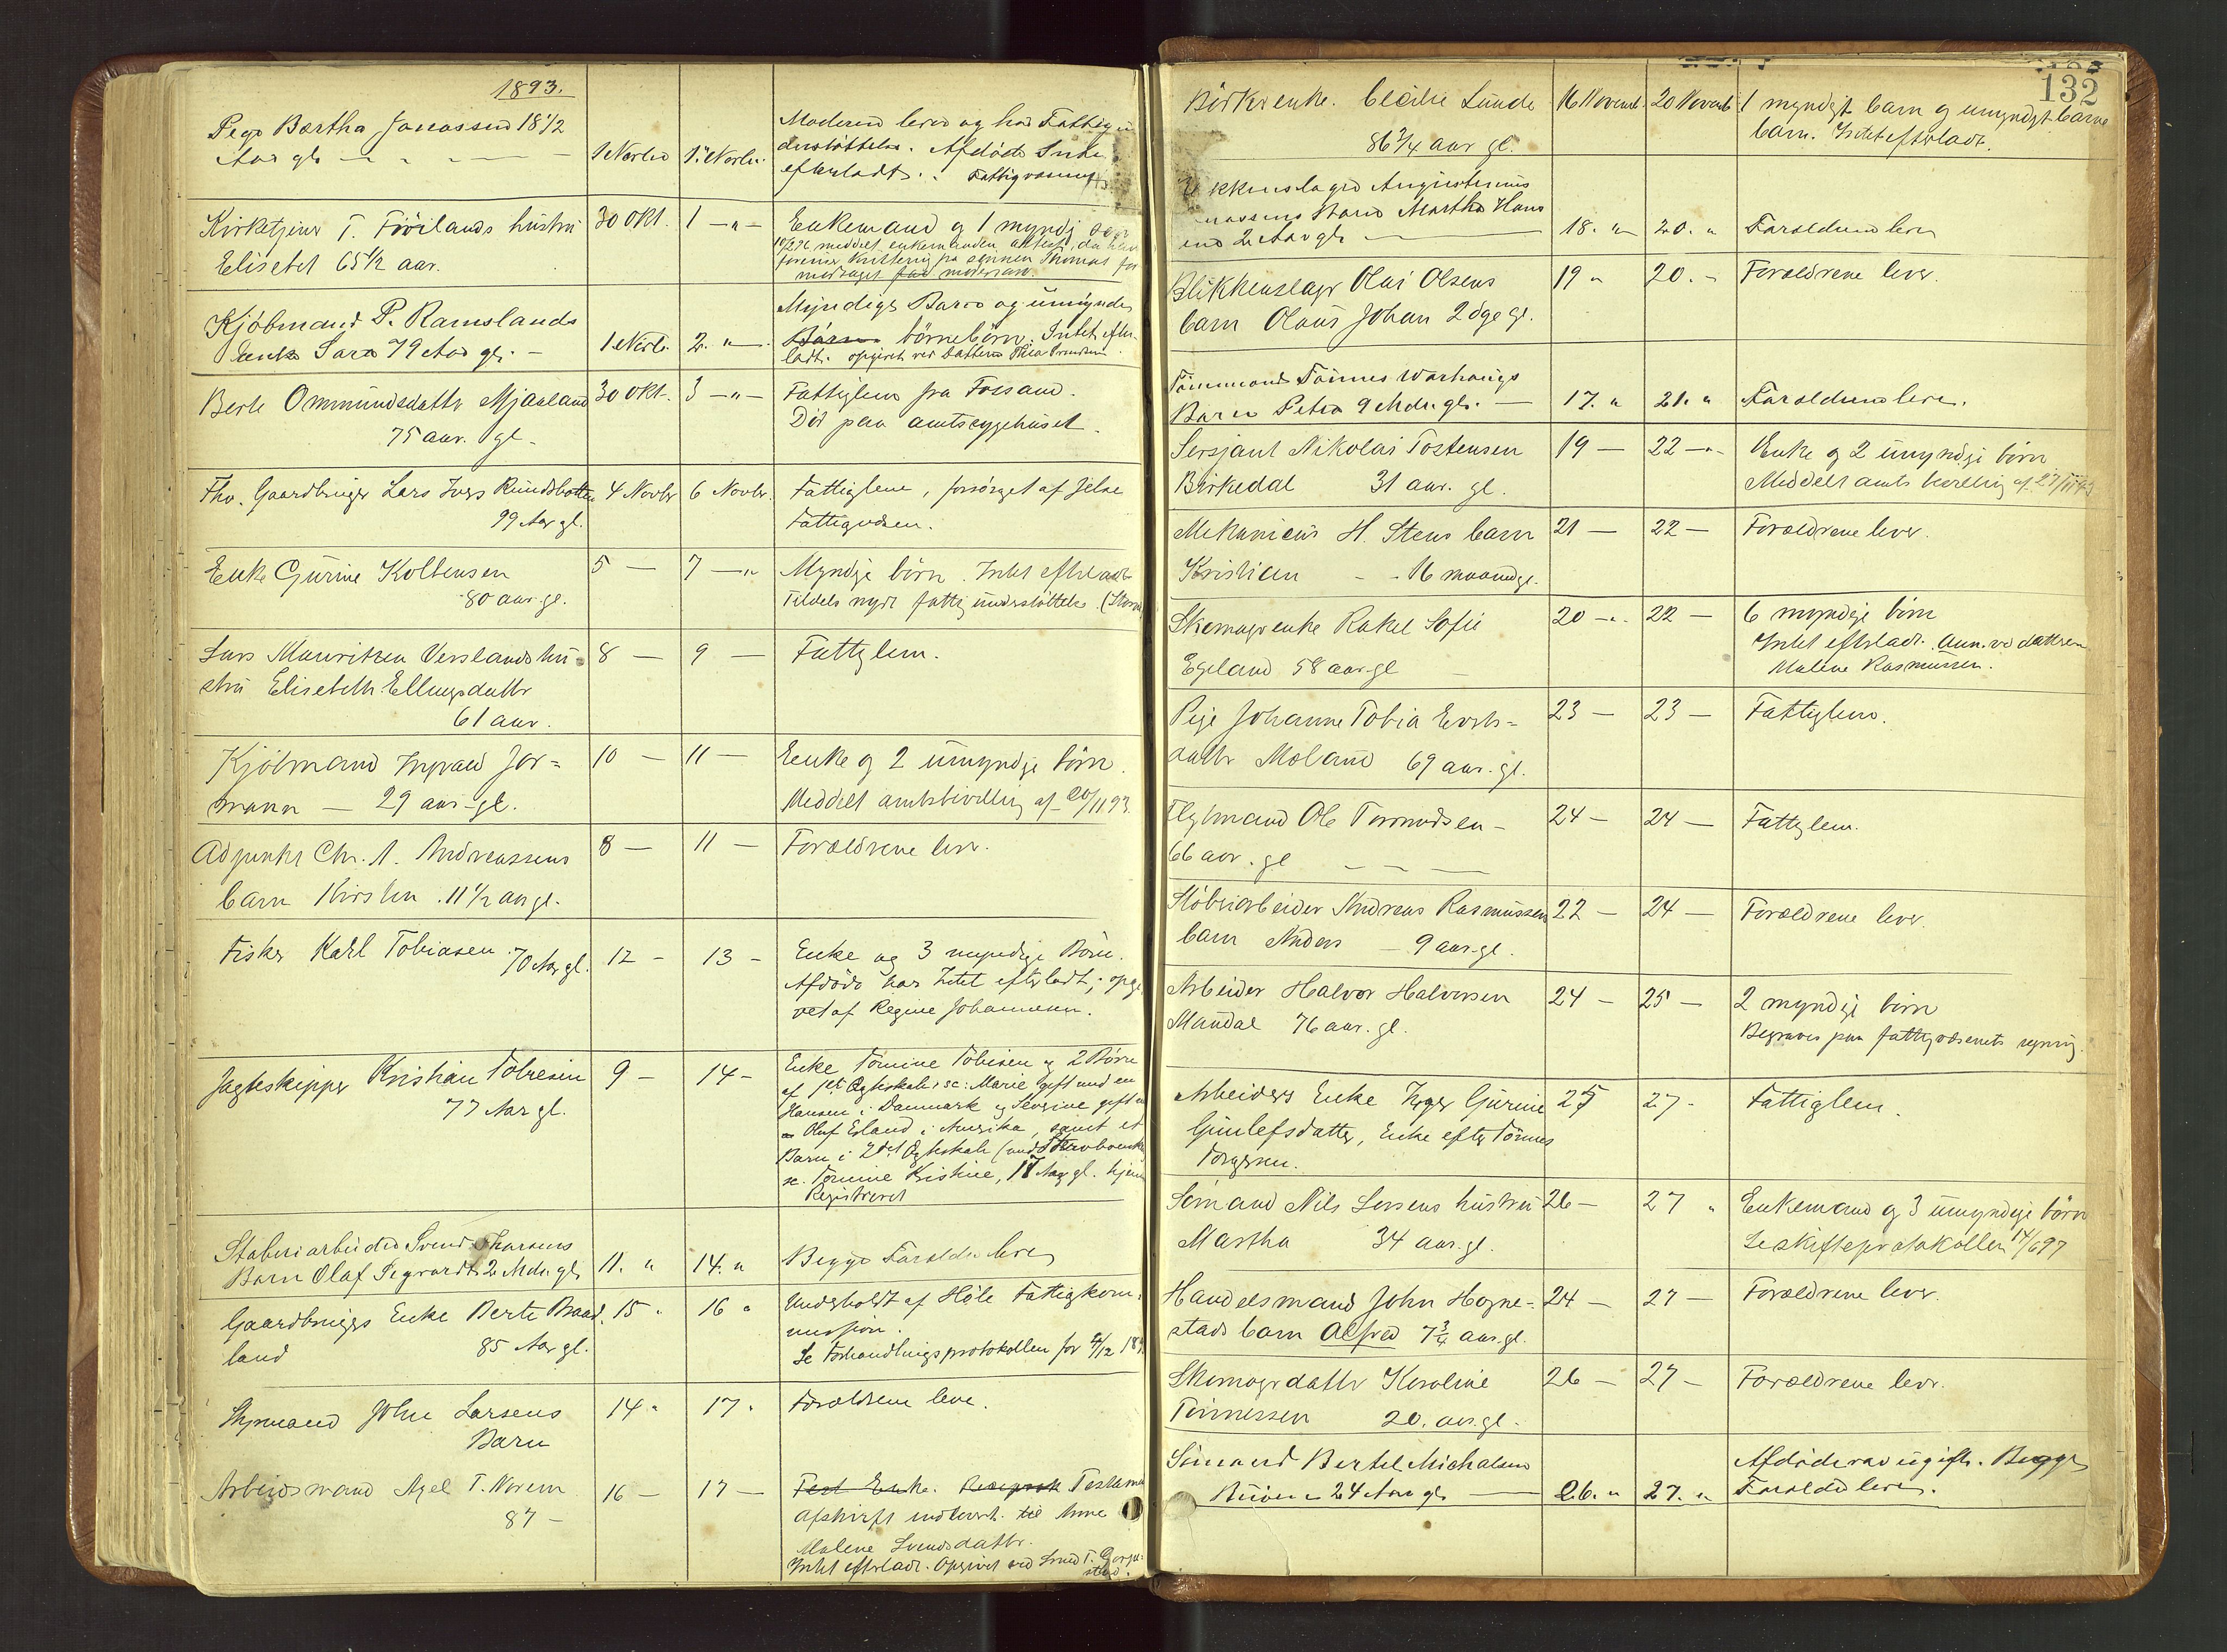 1893.
Pige Bertha Jonassen 18 1/2
Aar gl. 1 Novbr 1. Novbr.
Moderen lever og har Fattigun
derstöttelse. Afdöde Intet
efterladt. Fattigvæsenet
Kirketjener T. hustru 30 Okt. 1 — " —
Elisebet 65 1/2 aar.
Enkemand og 1 myndig søn
meddelt enkemanden attest, da han
sønnen Thomas for
modtaget moderarv
Kjöbmand P. Ramslands
Enke Sara 79 Aar gl. — 1 Novb. 2. "
Myndige Barn og umyndige
Börn börnebörn. Intet efter
ladt. opgivet ved Datteren
Berte Ommundsdatter Mjaaland 30 Okt. 3 — " —
75 aar. gl.
Fattiglem fra Fossand.
Död paa amtssygehuset.
Fhv. Gaardbruger Lars Ivers 4 Novbr 6 Novbr.
99 Aar gl.
Fattiglem, forsörget af Jelse
Fattigvæsen.
Enke Gurine Koltensen 5 — 7 — "
80 aar gl.
Myndige börn. Intet efterladt
Tildels nydt fattigunderstöttelse
Lars Mauritzen Verslands hu- 8 — 9 —
stru Elisebeth Ellingsdatter
61 aar.
Fattiglem.
Kjöbmand Ingvald Jor= 10 — 11 —
mann — 29 aar gl.
Enke og 2 umyndige börn.
Meddelt amtsbevilling af 20/11 93.
Adjunkt Chr. A. Andreassens 8 — 11 —
barn Kirsten. 11 1/2 aar gl.
Forældrene lever.
Fisker Karl Tobiasen 70 Aar gl. 12 — 13 —
Enke og 3 myndige Börn.
Afdöde har Intet efterladt; opgi
vet af Regine Johannesen.
Jagteskipper Kristian Tobiesen 9 — 14 —
77 Aar gl.
Enke Tomine Tobisen og 2 Börn
af 1ste Ægteskab: sc: Marie gift med en
Hansen i Danmark og Severine gift m
Oluf Egland i Amerika, samt et
Barn i 2det Ægteskab
sc. Tomine Kristine, 17 Aar gl. hjem
Registreret
Stöberiarbeider Svend
Barn Olaf Sigvardt 2 Mdr. gl. 11. " 14. "
Begge Forældre lever
Gaardbrugers Enke Berte Braad 15 " 16 "
land 85 Aar gl.
Underholdt af Höle Fattigkom
mission.
Se Forhandlingsprotokollen for 4/12 189
Styrmand John Larsens 14 " 17 "
Barn
Forældrene leve.
Arbeidsmand Axel T. Norem 16 — 17 —
87 —
Test Enke. Reciprok Testame
Afskrift indlevert til
Malene Svendsdatter.
Intet efterladt. Opgivet ved Svend T.
132
Enke. Cecilie Lunde 16 Novemb. 20 Novemb
86 3/4 aar gl.
1 myndigt barn og umyndigt barne
barn. Intet efterladt.
Augustinius
Barn Martha Hans
ine 2 Aar gl. — 18. " 20. "
Forældrene lever
Blikkenslager Olai Olsens 19 " 20. "
barn Olaus Johan 2 dge gl.
Forældrene lever.
Tömmermand Tönnes Warhaugs
Barn Petra 9 Mdr. gl. — 17. " 21. "
Forældrene lever.
Sersjant Nikolai Tostensen 19 — 22 — "
Birkedal 31 aar. gl.
Enke og 2 umyndige börn
Meddelt amts bevilling af 27/11 93
Mekanicus H. Stens barn 21 — 22 —
Kristian — 16 maaned gl.
Forældrene lever.
Skomagerenke Rakel Sofie 20 — " 22 —
Egeland 58 aar gl
6 myndige börn
Intet efterladt. Anm. ved datteren
Malene Rasmussen.
Pige Johanne Tobia Everts= 23 — 23 —
datter Moland 69 aar. gl.
Fattiglem.
Ole Tormodsen — 24 — 24 —
66 aar. gl
Fattiglem.
Stöberiarbeider Andreas Rasmussens 22 — 24 —
barn Anders — 9 aar gl.
Forældrene lever.
Arbeider Halvor Halvorsen 24 — 25 —
Mandal 76 aar. gl.
2 myndige börn
Begraves paa fattigvæsenets regning.
Arbeiders Enke Inger Gurine 25 27 —
Gunlefsdatter, Enke efter Tönnes
Torgersen.
Fattiglem.
Sömand Nils Larsens hustru 26 — 27 "
Martha 34 aar. gl.
Enkemand og 3 umyndige börn
Se skifteprotokollen 14/6 97
Handelsmand John Hogne= 24 — 27 —
stads barn Alfred 7 3/4 aar. gl.
Forældrene lever.
Skomagerdatter Karoline 26 — 27 —
Tönnessen 20. aar. gl.
Forældrene lever.
Sömand Bertel Michalsen
24 Aar gl. — 26. " 27. "
Afdöde var ugift. Begge
Forældre lever.